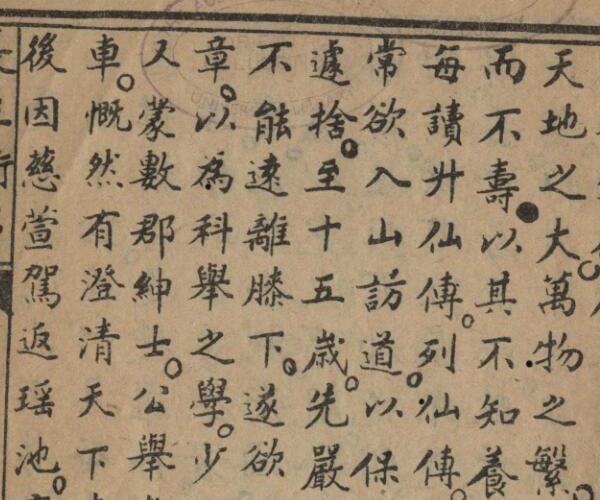 天地之大。萬物之繁。
而不壽。以其不知養
每讀升仙傳。列仙傳。
常欲入山訪道。以保
遽捨。至十五歲。先嚴
不能遠離膝下。遂欲
章。以為科舉之學。少
又蒙數郡紳士。公舉
車。慨然有澄清天下
後因慈萱駕返瑤池。